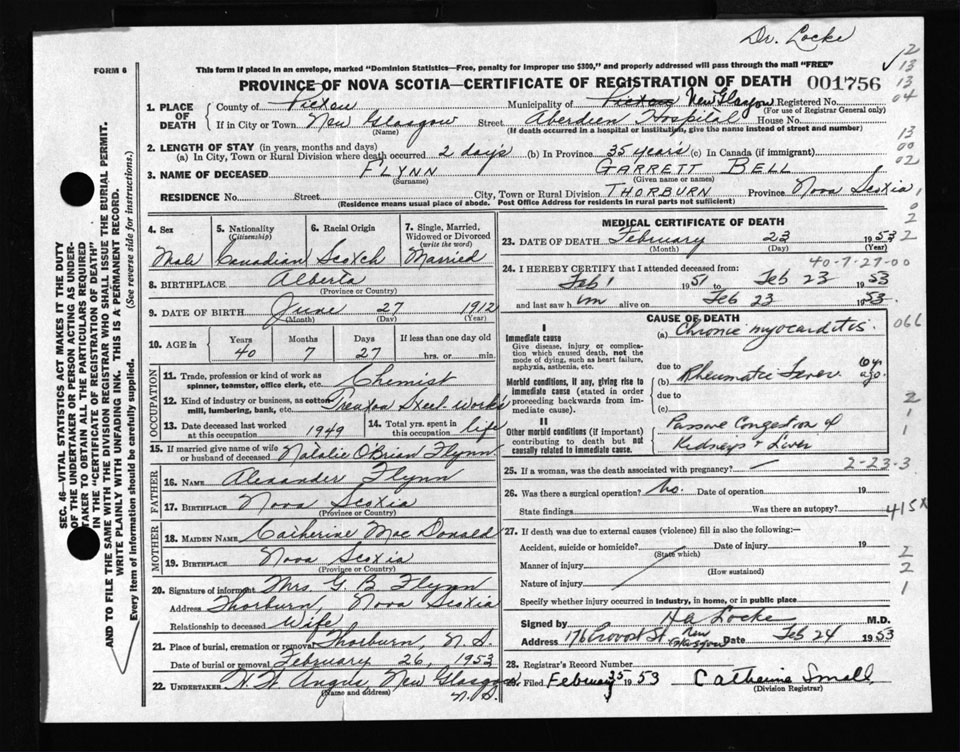 Dr. Locke
FORM 6
This form if placed in an envelope, marked "Dominion Statistics—Free, penalty for improper use $300," and properly addressed will pass through the mail "FREE"
PROVINCE OF NOVA SCOTIA—CERTIFICATE OF REGISTRATION OF DEATH 001756
1. PLACE OF DEATH
County of Pictou Municipality of Pictou New Glasgow Registered No.
(For use of Registrar General only)
If in City or Town New Glasgow Street Aberdeen Hospital House No.
(Name) (If death occurred in a hospital or institution, give the name instead of street and number)
2. LENGTH OF STAY (in years, months and days)
(a) In City, Town or Rural Division where death occurred 2 days (b) In Province 35 years (c) In Canada (if immigrant)
3. NAME OF DECEASED FLYNN GARRETT BELL
(Surname) (Given name or names)
RESIDENCE No. Street City, Town or Rural Division THORBURN Province Nova Scotia
(Residence means usual place of abode. Post Office Address for residents in rural parts not sufficient)
4. Sex
Male
5. Nationality (Citizenship)
Canadian
6. Racial Origin
Scotch
7. Single, Married, Widowed or Divorced (write the word)
Married
8. BIRTHPLACE Alberta
(Province or Country)
9. DATE OF BIRTH June 27 1912
(Month) (Day) (Year)
10. AGE in Years Months Days If less than one day old
40 7 27 hrs. or min.
OCCUPATION
11. Trade, profession or kind of work as spinner, teamster, office clerk, etc. Chemist
12. Kind of industry or business, as cotton mill, lumbering, bank, etc. Trenton Steel Works
13. Date deceased last worked at this occupation 1949
14. Total yrs. spent in this occupation life
15. If married give name of wife or husband of deceased Natalie O'Brian Flynn
FATHER
16. NAME Alexander Flynn
17. BIRTHPLACE Nova Scotia
(Province or Country)
MOTHER
18. MAIDEN NAME Catherine Mac Donald
19. BIRTHPLACE Nova Scotia
(Province or Country)
20. Signature of informant Mrs. G. B. Flynn
Address Thorburn, Nova Scotia
Relationship to deceased Wife
21. Place of burial, cremation or removal Thorburn, N.S.
Date of burial or removal February 26, 1953
22. UNDERTAKER H. W. Angus, New Glasgow N.S.
(Name and address)
MEDICAL CERTIFICATE OF DEATH
23. DATE OF DEATH February 23 1953
(Month) (Day) (Year)
40-7-27-00
24. I HEREBY CERTIFY that I attended deceased from:
Feb 1 1951 to Feb 23 1953
and last saw him alive on Feb 23 1953.
CAUSE OF DEATH
I
Immediate cause
Give disease, injury or complication which caused death, not the mode of dying, such as heart failure, asphyxia, asthenia, etc.
(a) Chronic myocarditis.
due to
Morbid conditions, if any, giving rise to immediate cause (stated in order proceeding backwards from immediate cause).
(b) Rheumatic fever
due to
(c)
II
Other morbid conditions (if important) contributing to death but not causally related to immediate cause.
Passive Congestion of
Kidneys & Liver
25. If a woman, was the death associated with pregnancy? —
2-23-3
26. Was there a surgical operation? No. Date of operation 19
State findings Was there an autopsy?
27. If death was due to external causes (violence) fill in also the following:—
Accident, suicide or homicide? Date of injury 19
(State which)
Manner of injury
(How sustained)
Nature of injury
Specify whether injury occurred in industry, in home, or in public place
Signed by H A Locke M.D.
Address 176 Provost St New Glasgow Date Feb 24 1953
28. Registrar's Record Number
29. Filed February 25 1953 Catherine Small
(Division Registrar)
2
13
13
04
13
00
02
0
2
2
066
2
1
1
2
2
1
SEC. 46—VITAL STATISTICS ACT MAKES IT THE DUTY
OF THE UNDERTAKER OR PERSON ACTING AS UNDER-
TAKER TO OBTAIN ALL THE PARTICULARS REQUIRED
IN THE "CERTIFICATE OF REGISTRATION OF DEATH"
AND TO FILE THE SAME WITH THE DIVISION REGISTRAR WHO SHALL ISSUE THE BURIAL PERMIT.
WRITE PLAINLY WITH UNFADING INK. THIS IS A PERMANENT RECORD.
Every item of information should be carefully supplied. (See reverse side for instructions.)